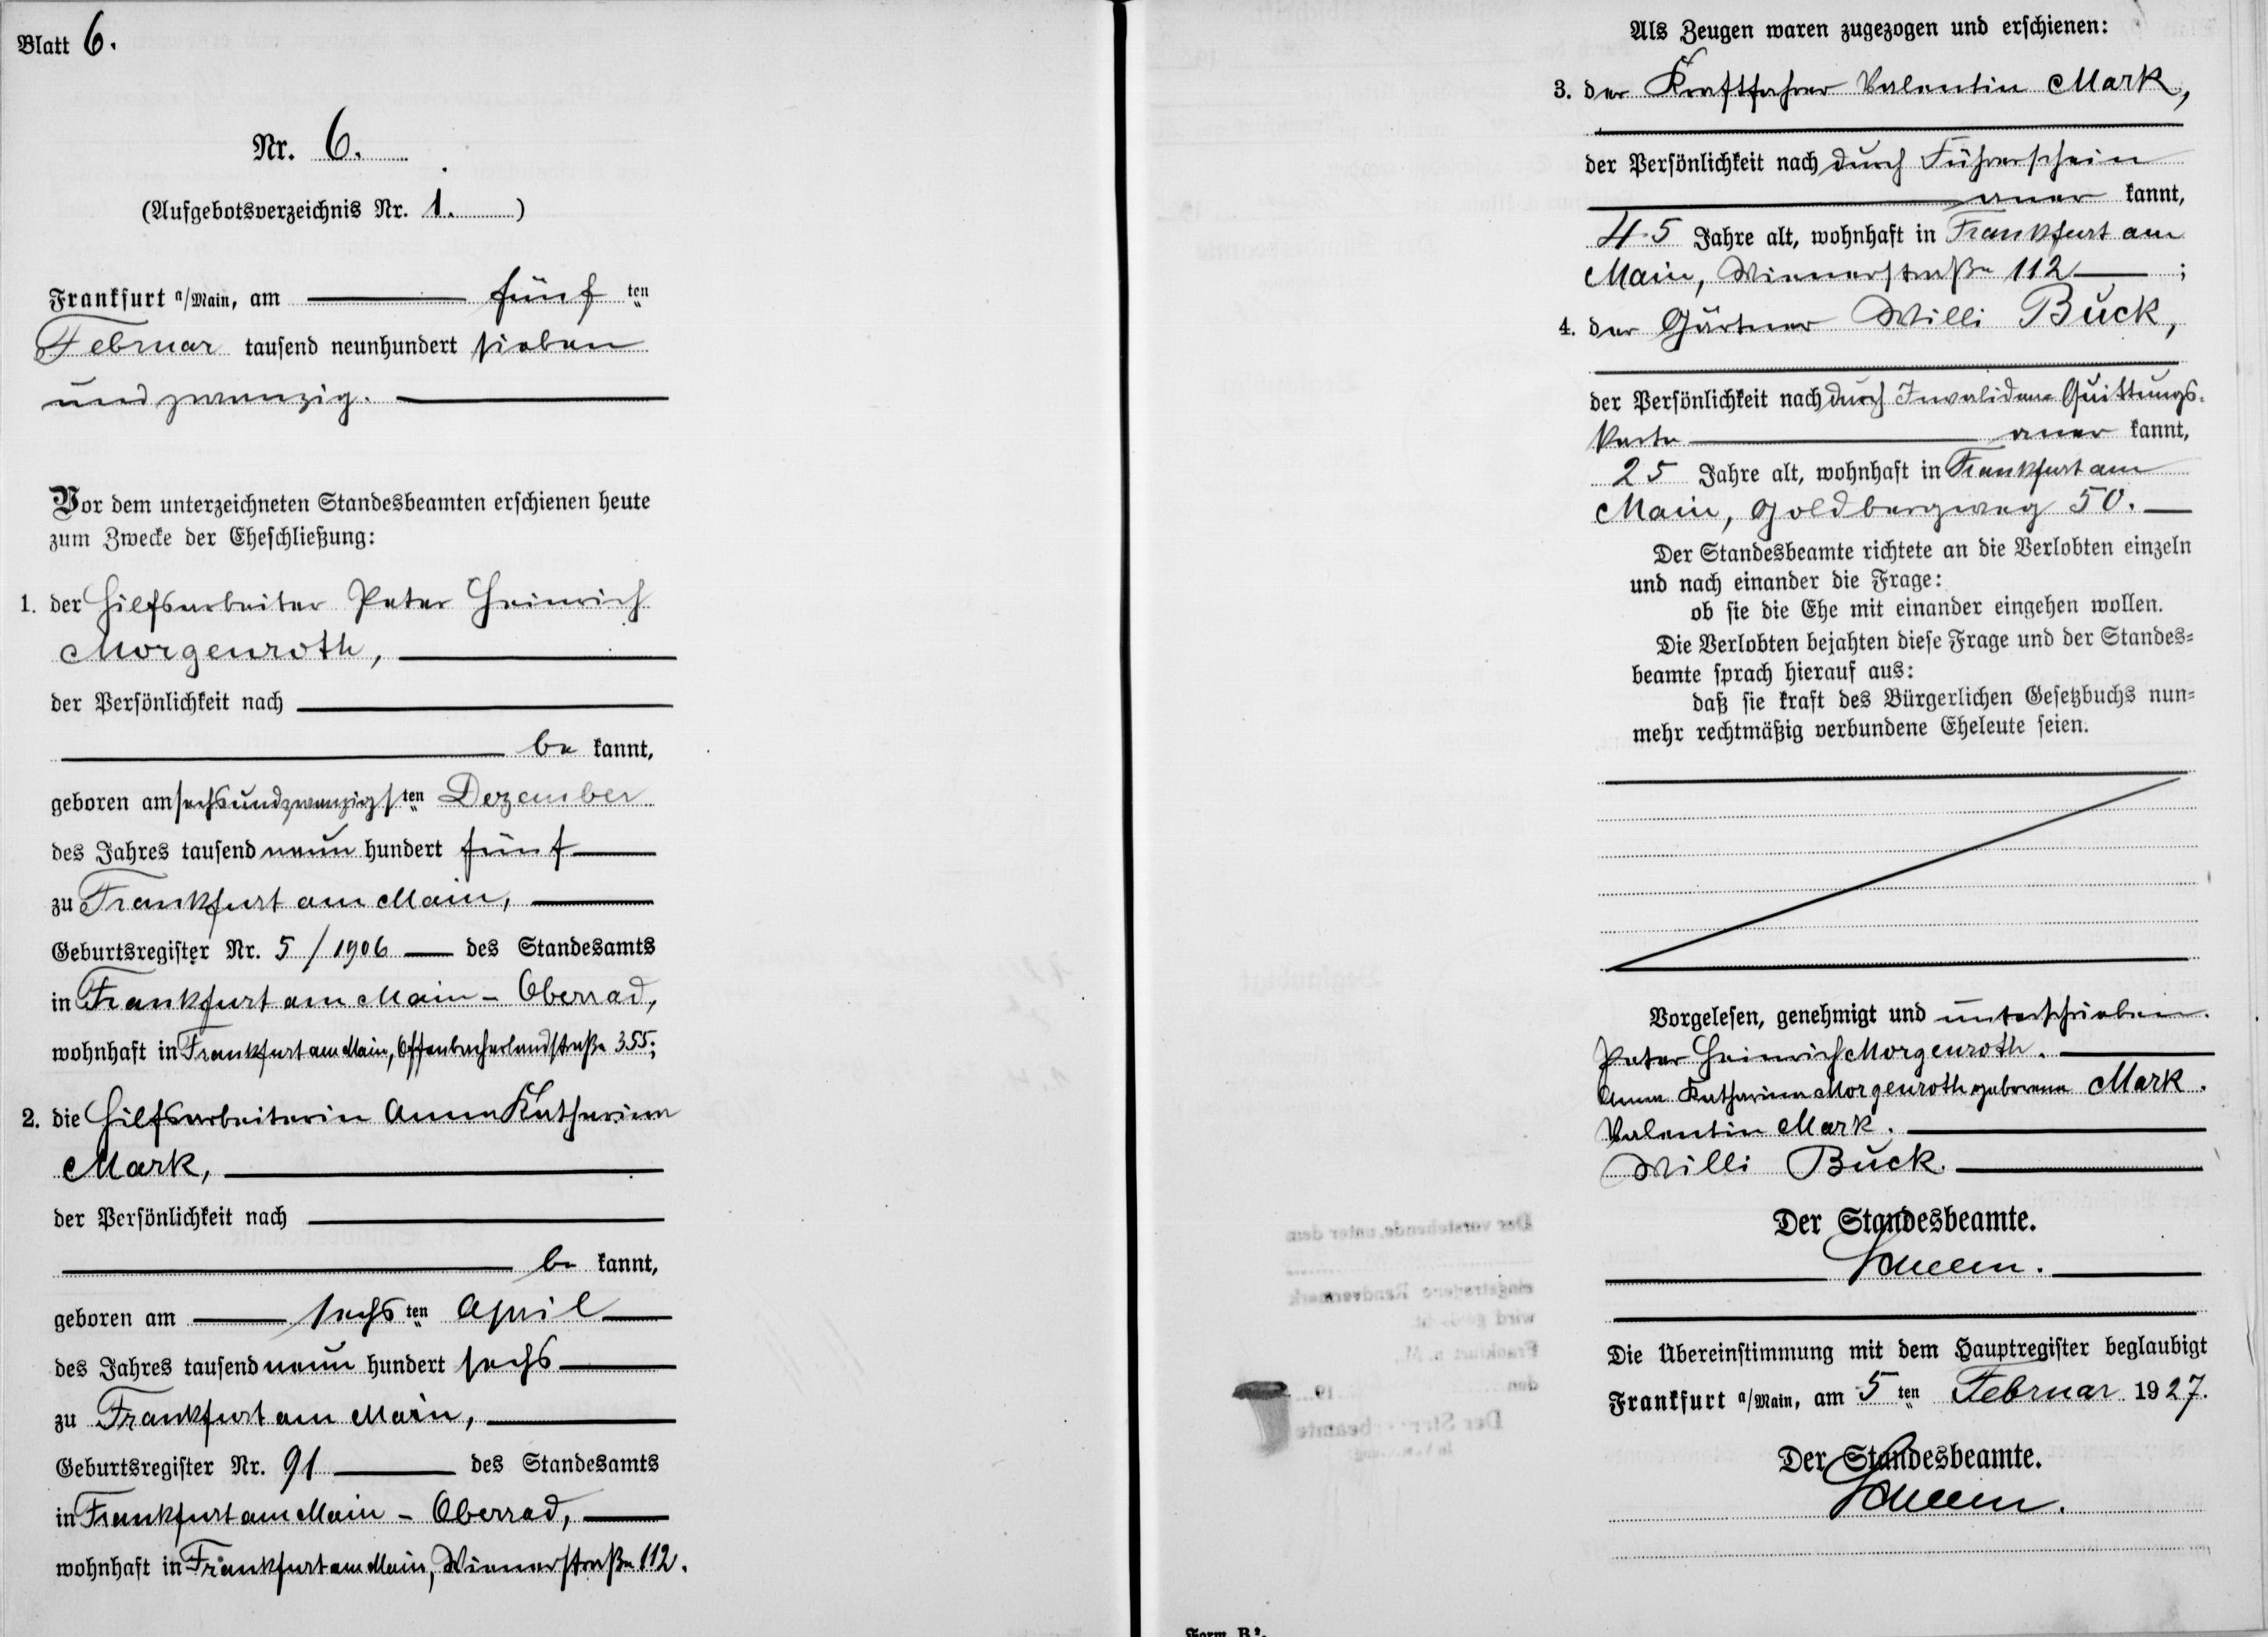 Blatt 6.
Nr. 6.
(Aufgebotsverzeichnis Nr. 1.)
Frankfurt a/Main, am fünf ten
Februar tausend neunhundert sieben
und zwanzig.
Vor dem unterzeichneten Standesbeamten erschienen heute
zum Zwecke der Eheschließung:
1. der Hilfsarbeiter Peter Heinrich
Morgenroth,
der Persönlichkeit nach
be kannt,
geboren am sechsundzwanzigsten Dezember
des Jahres tausend neun hundert fünf
zu Frankfurt am Main,
Geburtsregister Nr. 5/1906 des Standesamts
in Frankfurt am Main - Oberrad,
wohnhaft in Frankfurt am Main, Offenbacherlandstraße 355;
2. die Hilfsarbeiterin Anna Katharina
Mark,
der Persönlichkeit nach
be kannt,
geboren am sechs ten April
des Jahres tausend neun hundert sechs
zu Frankfurt am Main,
Geburtsregister Nr. 91 des Standesamts
in Frankfurt am Main - Oberrad,
wohnhaft in Frankfurt am Main, Wienerstraße 112.
Als Zeugen waren zugezogen und erschienen:
3. der Kraftfahrer Valentin Mark,
der Persönlichkeit nach durch Führerschein
aner kannt,
45 Jahre alt, wohnhaft in Frankfurt am
Main, Wienerstraße 112;
4. der Gärtner Willi Buck,
der Persönlichkeit nach durch Invaliden Quittungs-
karte aner kannt,
25 Jahre alt, wohnhaft in Frankfurt am
Main, Goldbergweg 50.
Der Standesbeamte richtete an die Verlobten einzeln
und nach einander die Frage:
ob sie die Ehe mit einander eingehen wollen.
Die Verlobten bejahten diese Frage und der Standes-
beamte sprach hierauf aus:
daß sie kraft des Bürgerlichen Gesetzbuchs nun-
mehr rechtmäßig verbundene Eheleute seien.
Vorgelesen, genehmigt und unterschrieben.
Peter Heinrich Morgenroth.
Anna Katharina Morgenroth geborene Mark.
Valentin Mark.
Willi Buck.
Der Standesbeamte.
Die Übereinstimmung mit dem Hauptregister beglaubigt
Frankfurt a/Main, am 5 ten Februar 1927.
Der Standesbeamte.